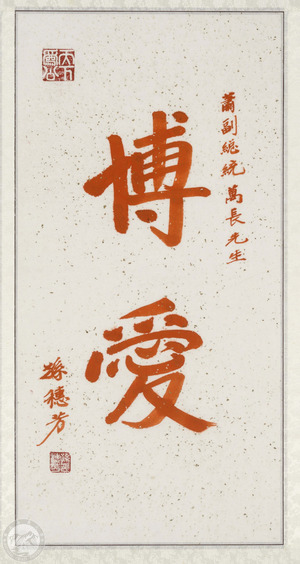 蕭副總統萬長先生
博愛
孫穗芳
天下為公